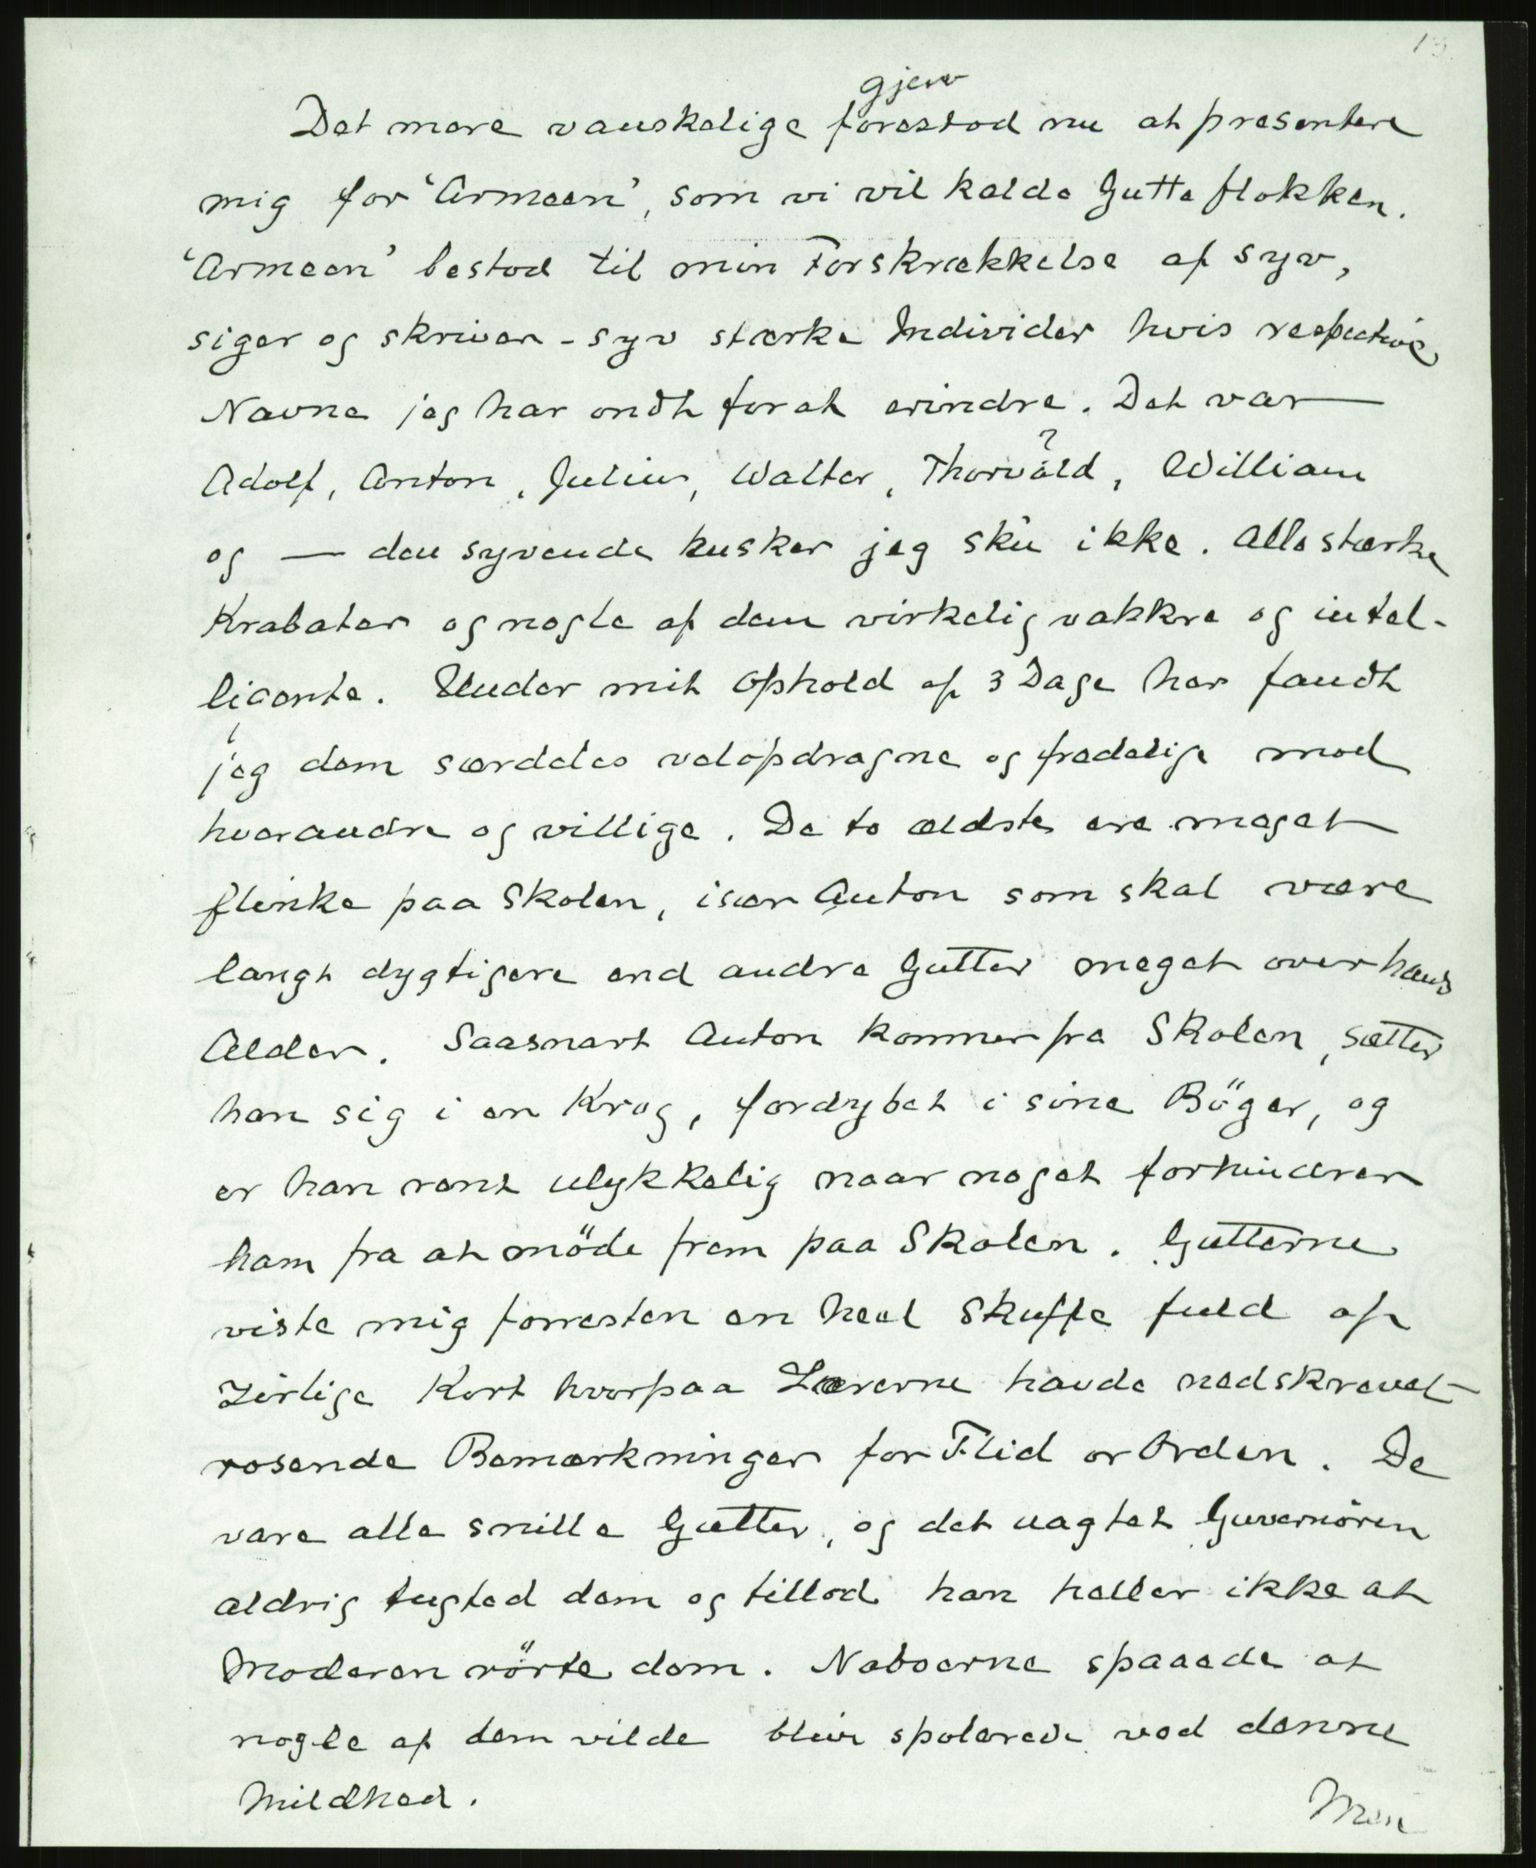 13
gjen
Det mere vanskelige forestod nu at presentere
mig for 'Armeen', som vi vil kalde Gutte flokken.
'Armeen' bestod til min Forskrækkelse af syv,
siger og skriver - syv stærke Individer hvis respective
Navne jeg har ondt for at erindre. Det var —
?
Adolf, Anton, Julius, Walter, Thorvald, William
og — den syvende husker jeg sku ikke. Alle stærke
Krabater og nogle af dem virkelig vakkre og intel-
ligente. Under mit Ophold af 3 Dage her fandt
jeg dem særdeles velopdragne og fredelige mod
hverandre og villige. De to ældste ere meget
flinke paa Skolen, især Anton som skal være
langt dygtigere end andre Gutter meget over hans
Alder. Saasnart Anton kommer fra Skolen, sætter
han sig i en Krog, fordybet i sine Böger, og
er han rent ulykkelig naar noget forhindrer
ham fra at möde frem paa Skolen. Gutterne
viste mig forresten en heel Skuffe fuld af
Zirlige Kort hvorpaa Lærerne havde nedskrevet
rosende Bemærkninger for Flid or Orden. De
vare alle snille Gutter, og det uagtet Guvernören
aldrig tugted dem og tillod han heller ikke at
Moderen rörte dem. Naboerne spaaede at
nogle af dem vilde blive spolerede ved denne
Mildhed.
Men